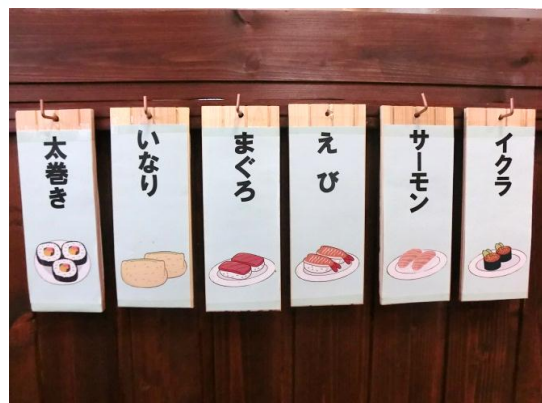 太巻き
いなり
まぐろ
えび
サーモン
イクラ